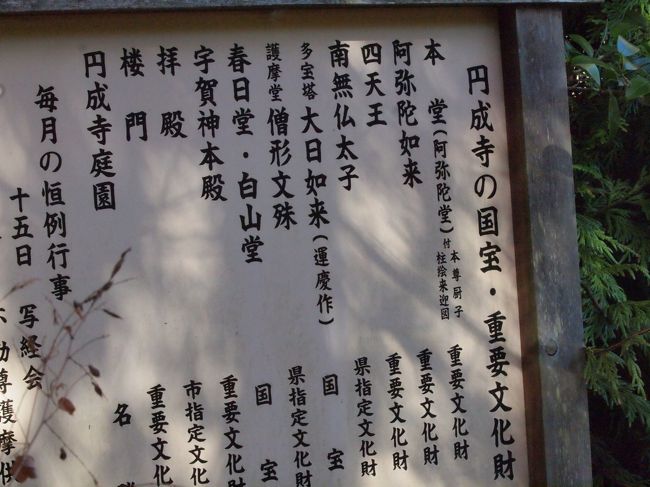 円成寺の国宝・重要文化財
本堂(阿弥陀堂)付 本尊厨子 柱絵来迎図 重要文化財
阿弥陀如来 重要文化財
四天王 重要文化財
南無仏太子 県指定文化財
多宝塔 大日如来(運慶作) 国宝
護摩堂 僧形文殊 県指定文化財
春日堂・白山堂 国宝
宇賀神本殿 重要文化財
拝殿 市指定文化
楼門 重要文化
円成寺庭園 名
毎月の恒例行事
十五日 写経会
動尊護摩供